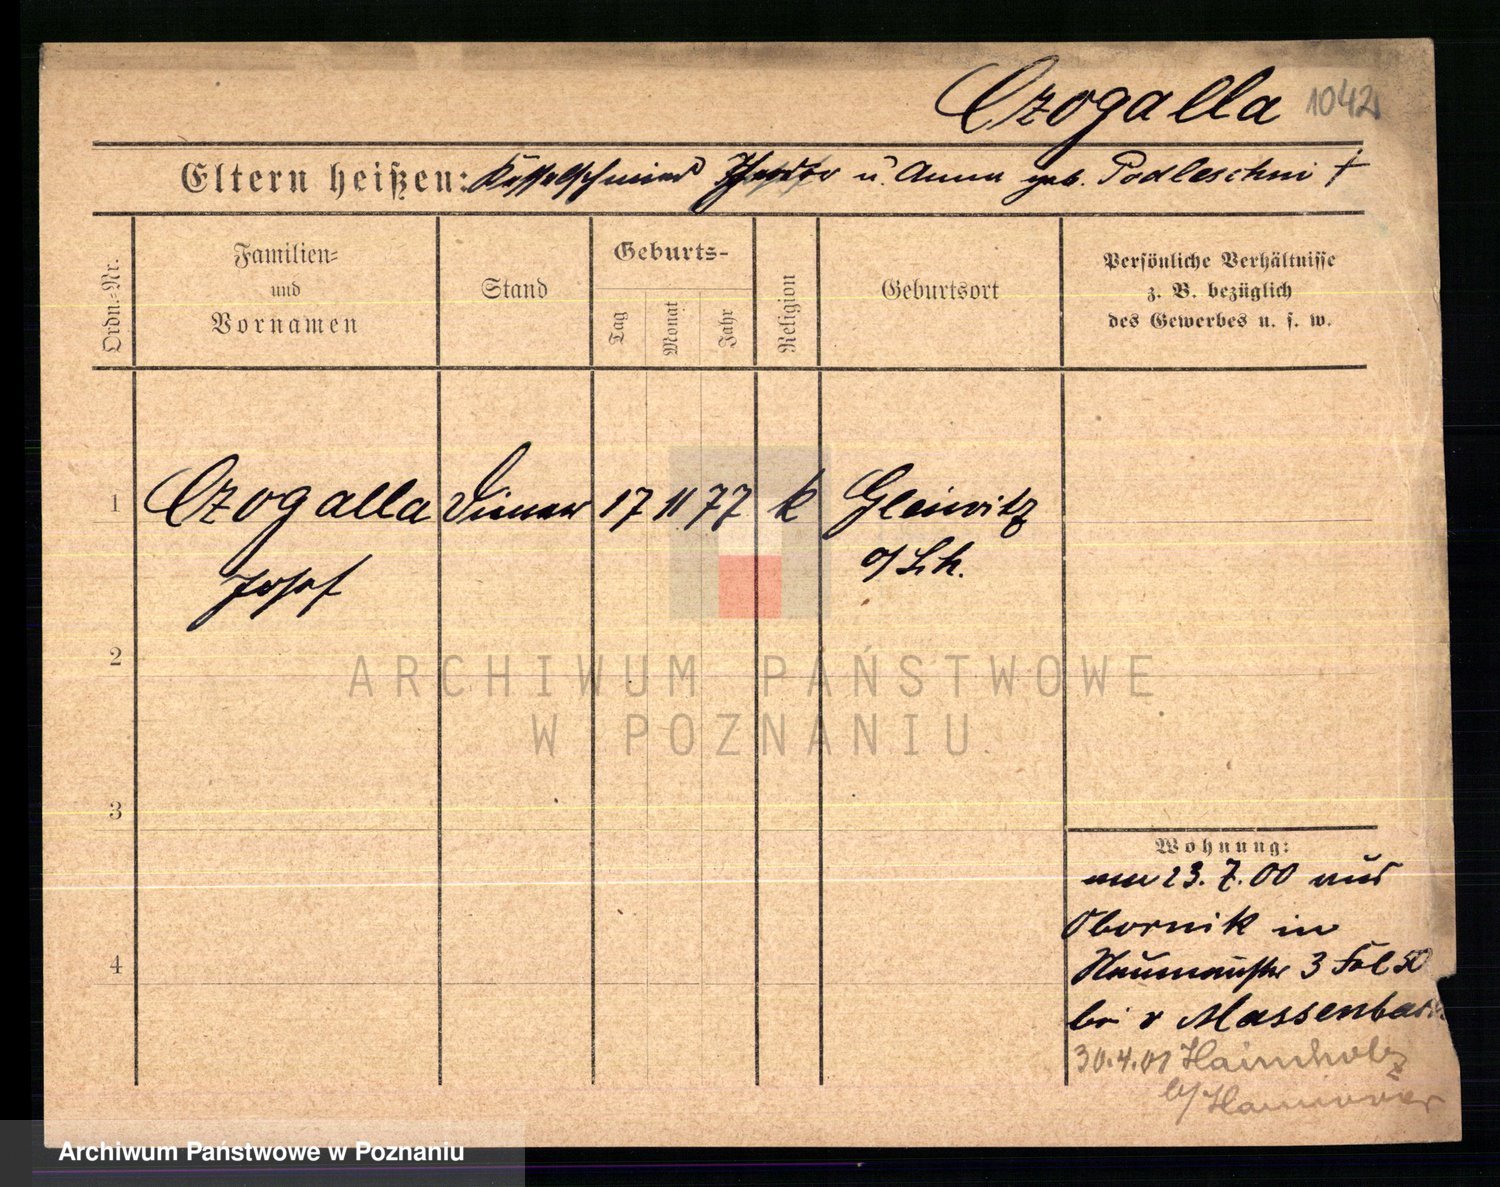 Czogalla 1042
Eltern heißen: Kesselschmied Theodor u. Anna geb. Podleschni †
Ordn.-Nr.
Familien-
und
Vornamen
Stand
Geburts-
Tag
Monat
Jahr
Religion
Geburtsort
Persönliche Verhältnisse
z. B. bezüglich
des Gewerbes u. s. w.
1 Czogalla Diener 17 11 77 k Gleiwitz
Josef
o/Sch.
2
ARCHIWUM PAŃSTWOWE
W POZNANIU
3
Wohnung:
am 23. 7. 00 aus
4
Obornik in
Naumannstr 3 Fol 50
bei v Massenbach
30.4.01 Hainholz
b/ Hannover
Archiwum Państwowe w Poznaniu